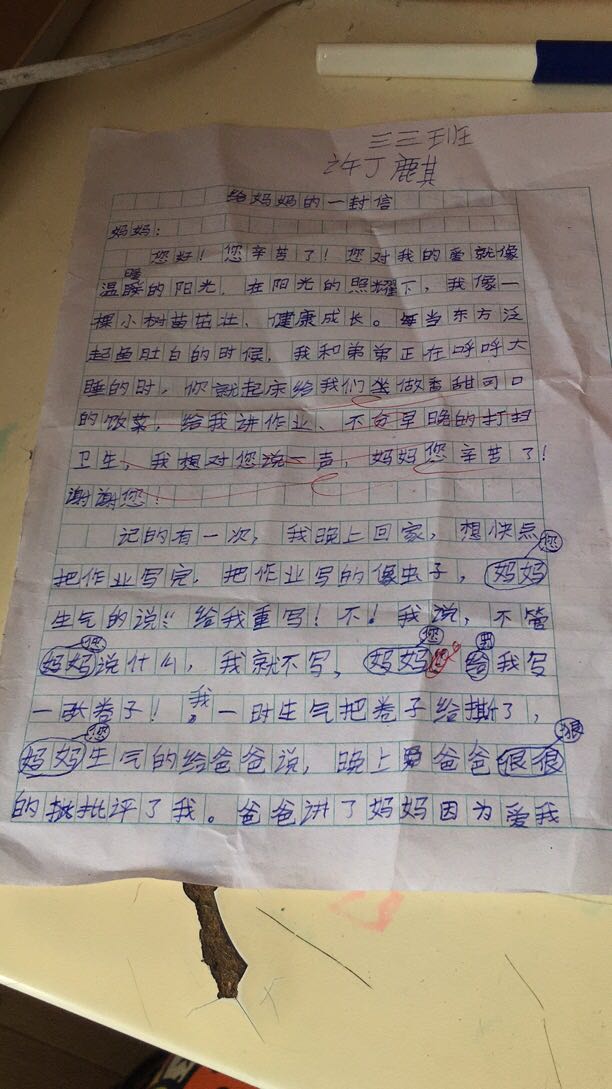 三三班
许丁麒
给妈妈的一封信
妈妈:
您好!您辛苦了!您对我的爱就像
暖
温暖的阳光,在阳光的照耀下,我像一
棵小树苗茁壮、健康成长。每当东方泛
起鱼肚白的时候,我和弟弟正在呼呼大
睡的时,你就起床给我们坐做香甜可口
的饭菜,给我讲作业、不分早晚的打扫
卫生,我想对您说一声,妈妈您辛苦了!
谢谢您!
记的有一次,我晚上回家,想快点
您
把作业写完,把作业写的像虫子,妈妈
生气的说:"给我重写!不!我说,不管
您 您 男
妈妈说什么,我就不写,妈妈 给我写
一张卷子!我一时生气把卷子给撕了,
您 狠
妈妈生气的给爸爸说,晚上 爸爸很很
的批批评了我。爸爸讲了妈妈因为爱我